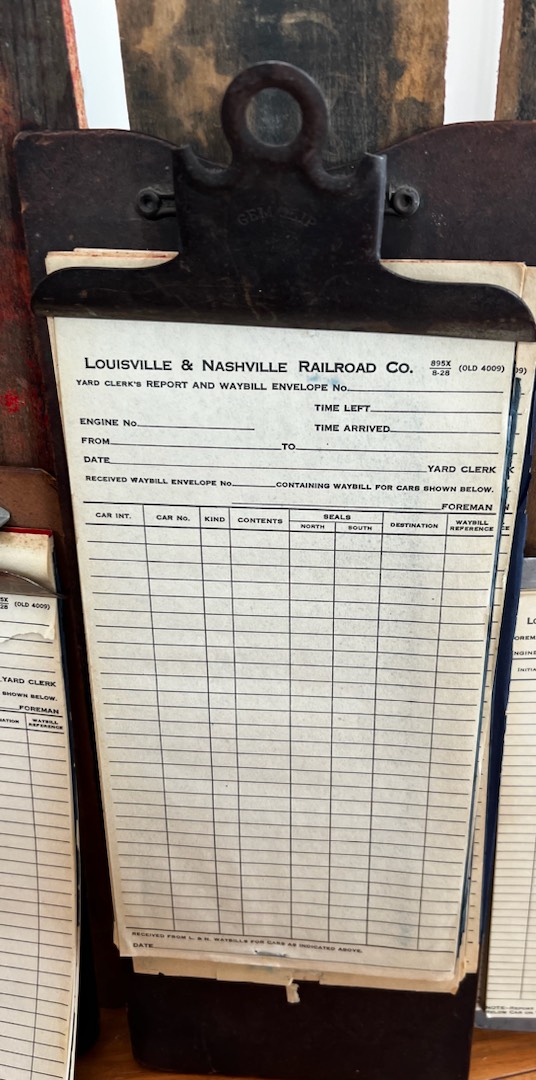 GEM CLIP
LOUISVILLE & NASHVILLE RAILROAD CO. 895X 8-28 (OLD 4009)
YARD CLERK'S REPORT AND WAYBILL ENVELOPE No.
TIME LEFT
ENGINE No. TIME ARRIVED
FROM TO
DATE YARD CLERK
RECEIVED WAYBILL ENVELOPE No. CONTAINING WAYBILL FOR CARS SHOWN BELOW.
FOREMAN
CAR INT. CAR No. KIND CONTENTS SEALS DESTINATION WAYBILL REFERENCE
NORTH SOUTH
RECEIVED FROM L. & N. WAYBILLS FOR CARS AS INDICATED ABOVE.
DATE
5X
28 (OLD 4009)
YARD CLERK
SHOWN BELOW.
FOREMAN
NATION WAYBILL REFERENCE
09)
K
N
CE
LO
FOREM
ENGINE
INITIA
NOTE—REPORT
BELOW CAR OR